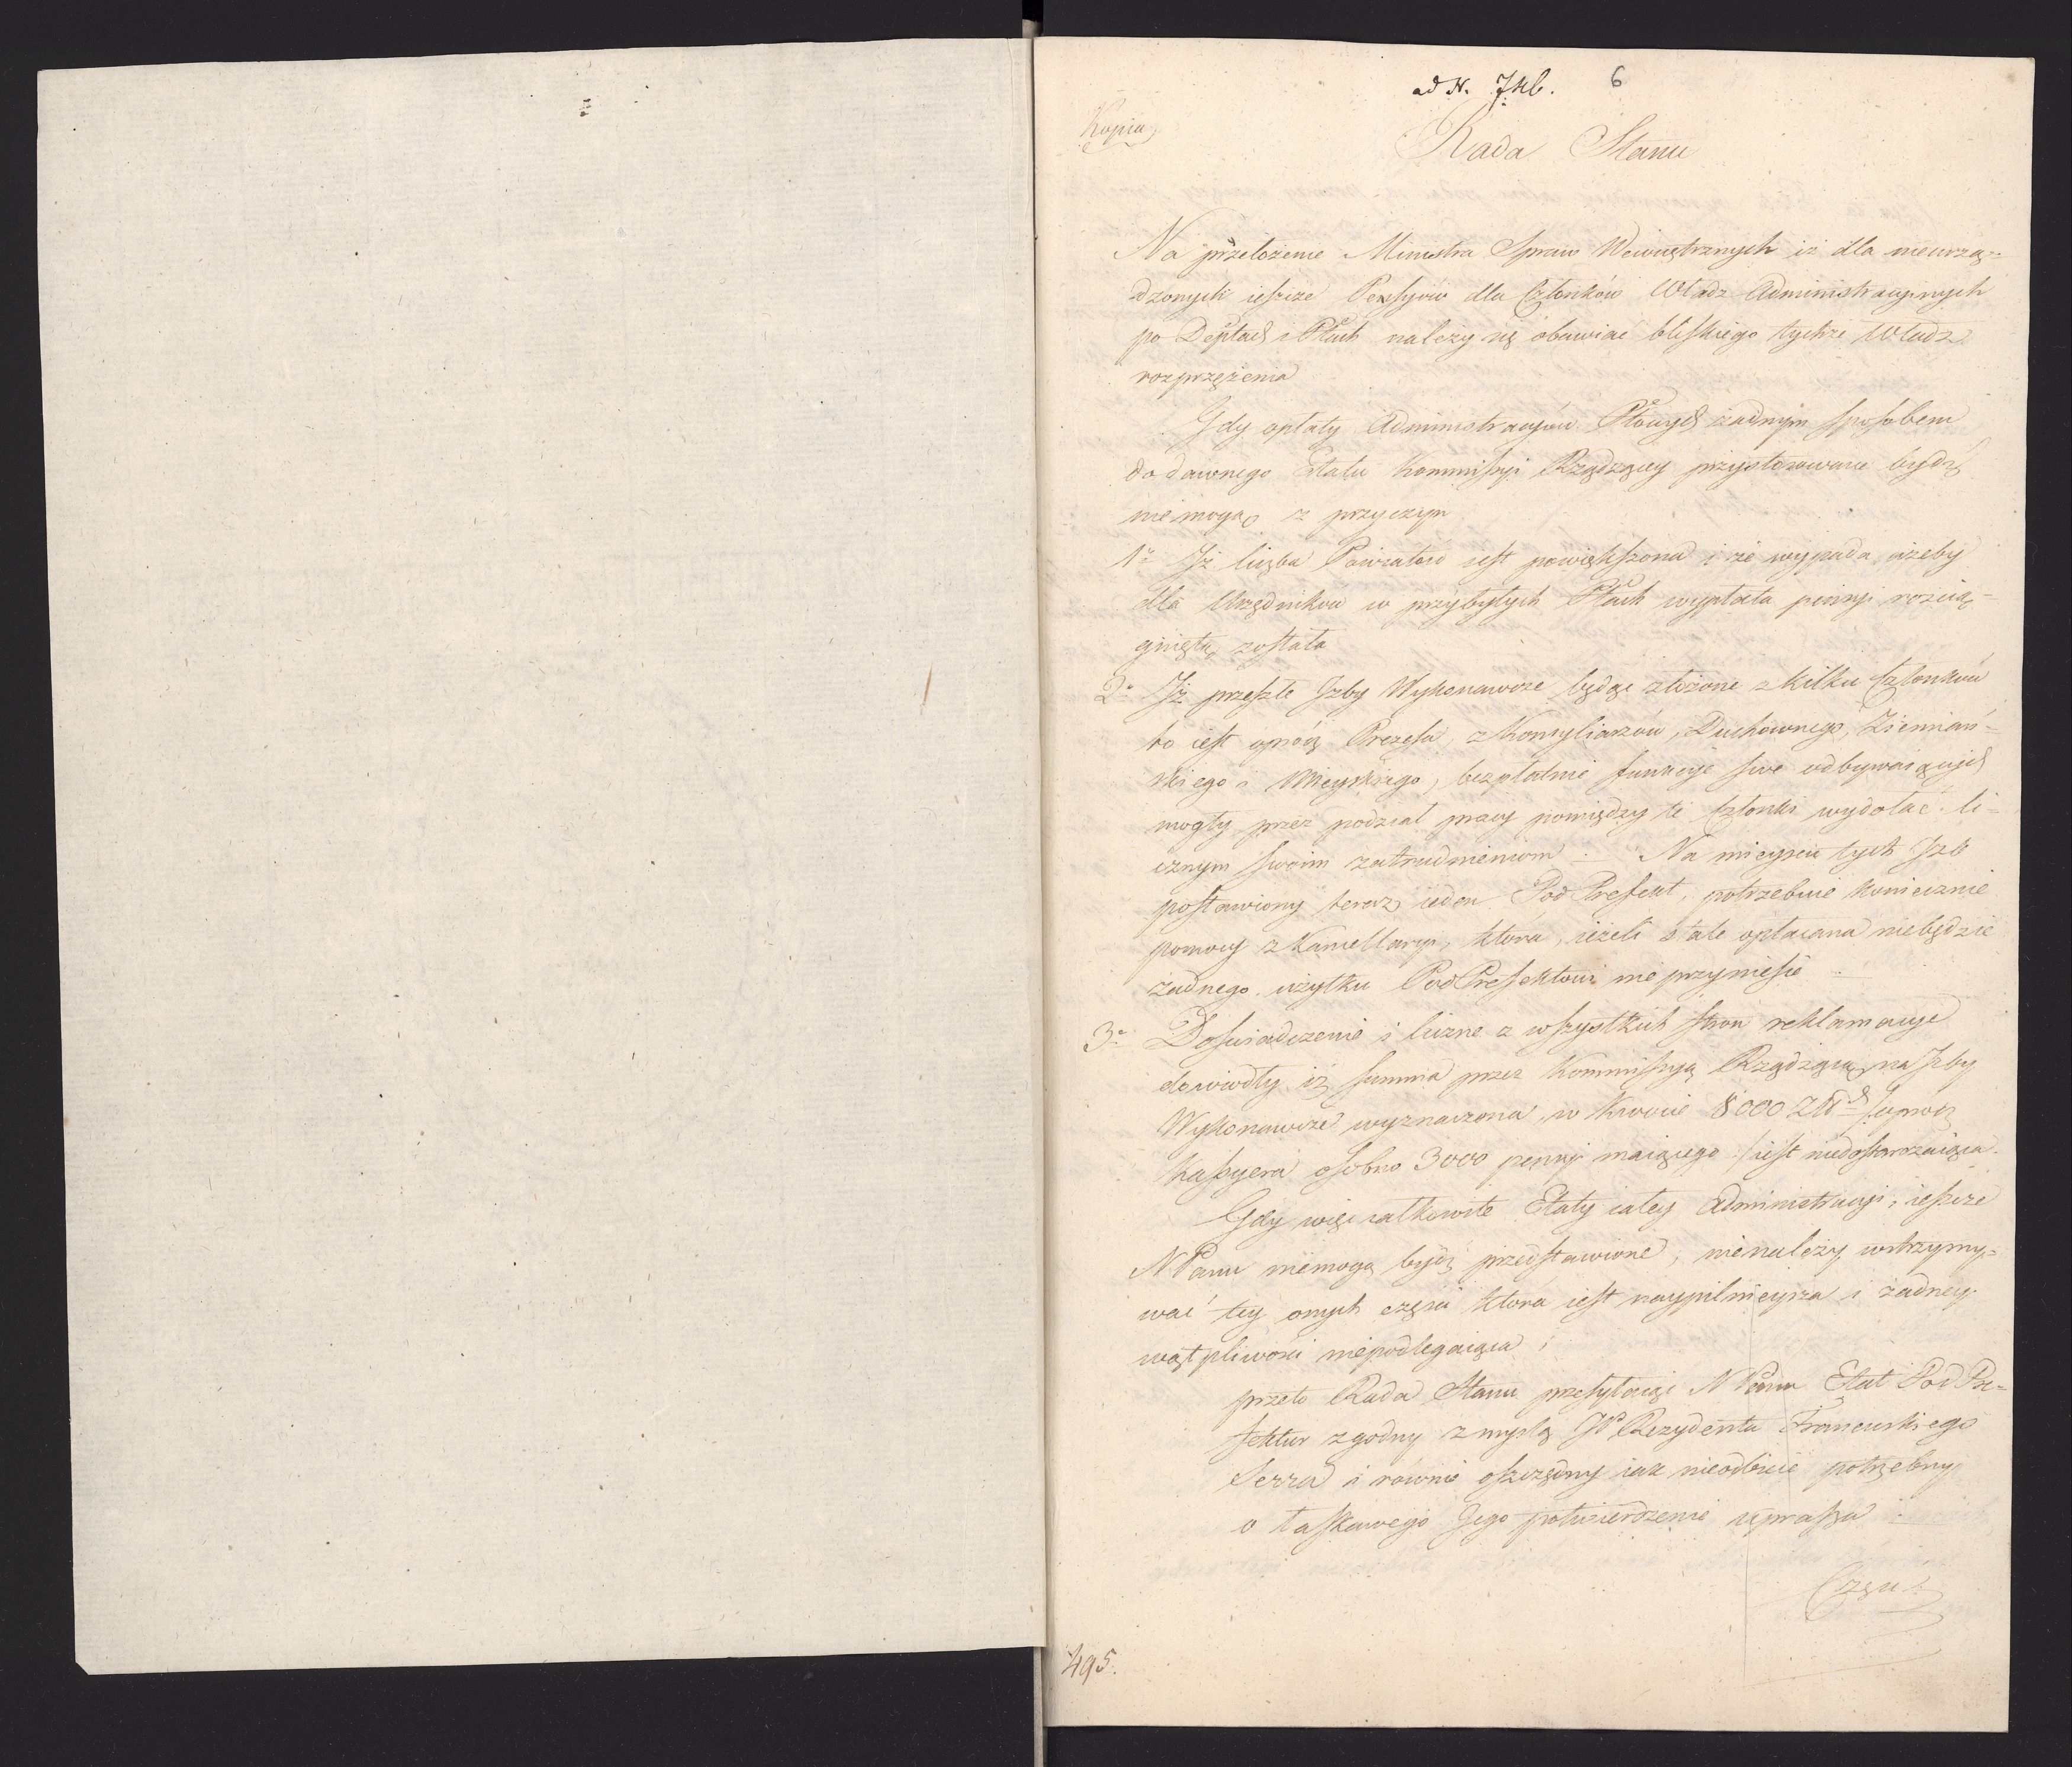 ad N. 7
6
Kopia
Rada Stanu
Na przełożenie Ministra Spraw Wewnętrznych iż dla nieurzą=
dzonych ieszcze Pensyów dla Członków Władz Administracyinych
po Deptach i Ptach należy się obawiać bliskiego tychże Władz
rozprzężenia
Gdy opłaty Administracyów Ptowych żadnym sposobem
do dawnego Etatu Kommissyi Rządzącey przystosowane bydź
nie mogą z przyczyn
1o Iż liczba Powiatów iest powiększona i że wypada ażeby
dla Urzędników w przybyłych Ptach wypłata pensyi rozcią=
gnięta została
2o Iż przeszłe Izby Wykonawcze będąc złożone z kilku Członków
to iest oprócz Prezesa, z Konsyliarzów, Duchownego, Ziemiań=
skiego i Mieyskiego, bezpłatnie funkcye swe odbywaiących
mogły przez podział pracy pomiędzy te Członki wydołać li=
cznym swoim zatrudnieniom. Na mieyscu tych Izb
postawiony teraz ieden Pod Prefekt, potrzebuie koniecznie
pomocy z Kancellaryi, która, ieżeli stale opłacana niebędzie
żadnego użytku PodPrefektowi nie przyniesie
3o Doświadczenie i liczne z wszystkich stron reklamacye
dowiodły iż summa przez Kommissyą Rządzącą na Izby
Wykonawcze wyznaczona, w kwocie 8000 Złłch /:oprócz
Kassyera osobno 3000 pensyi maiącego:/ iest niedostarczaiąca.
Gdy więc całkowite Etaty całey Administracyi, ieszcze
N Panu niemogą bydź przedstawione, nienależy wstrzymy=
wać tey onych części która iest naypilnieysza i żadney
wątpliwości niepodlegaiąca;
przeto Rada Stanu przesyłaiąc N Panu Etat Pod Pre=
fektur zgodny z myślą JP Rezydenta Francuskiego
Serra i równie oszczędny iak nieodbicie potrzebny
o łaskawego Jego potwierdzenie uprasza
495.